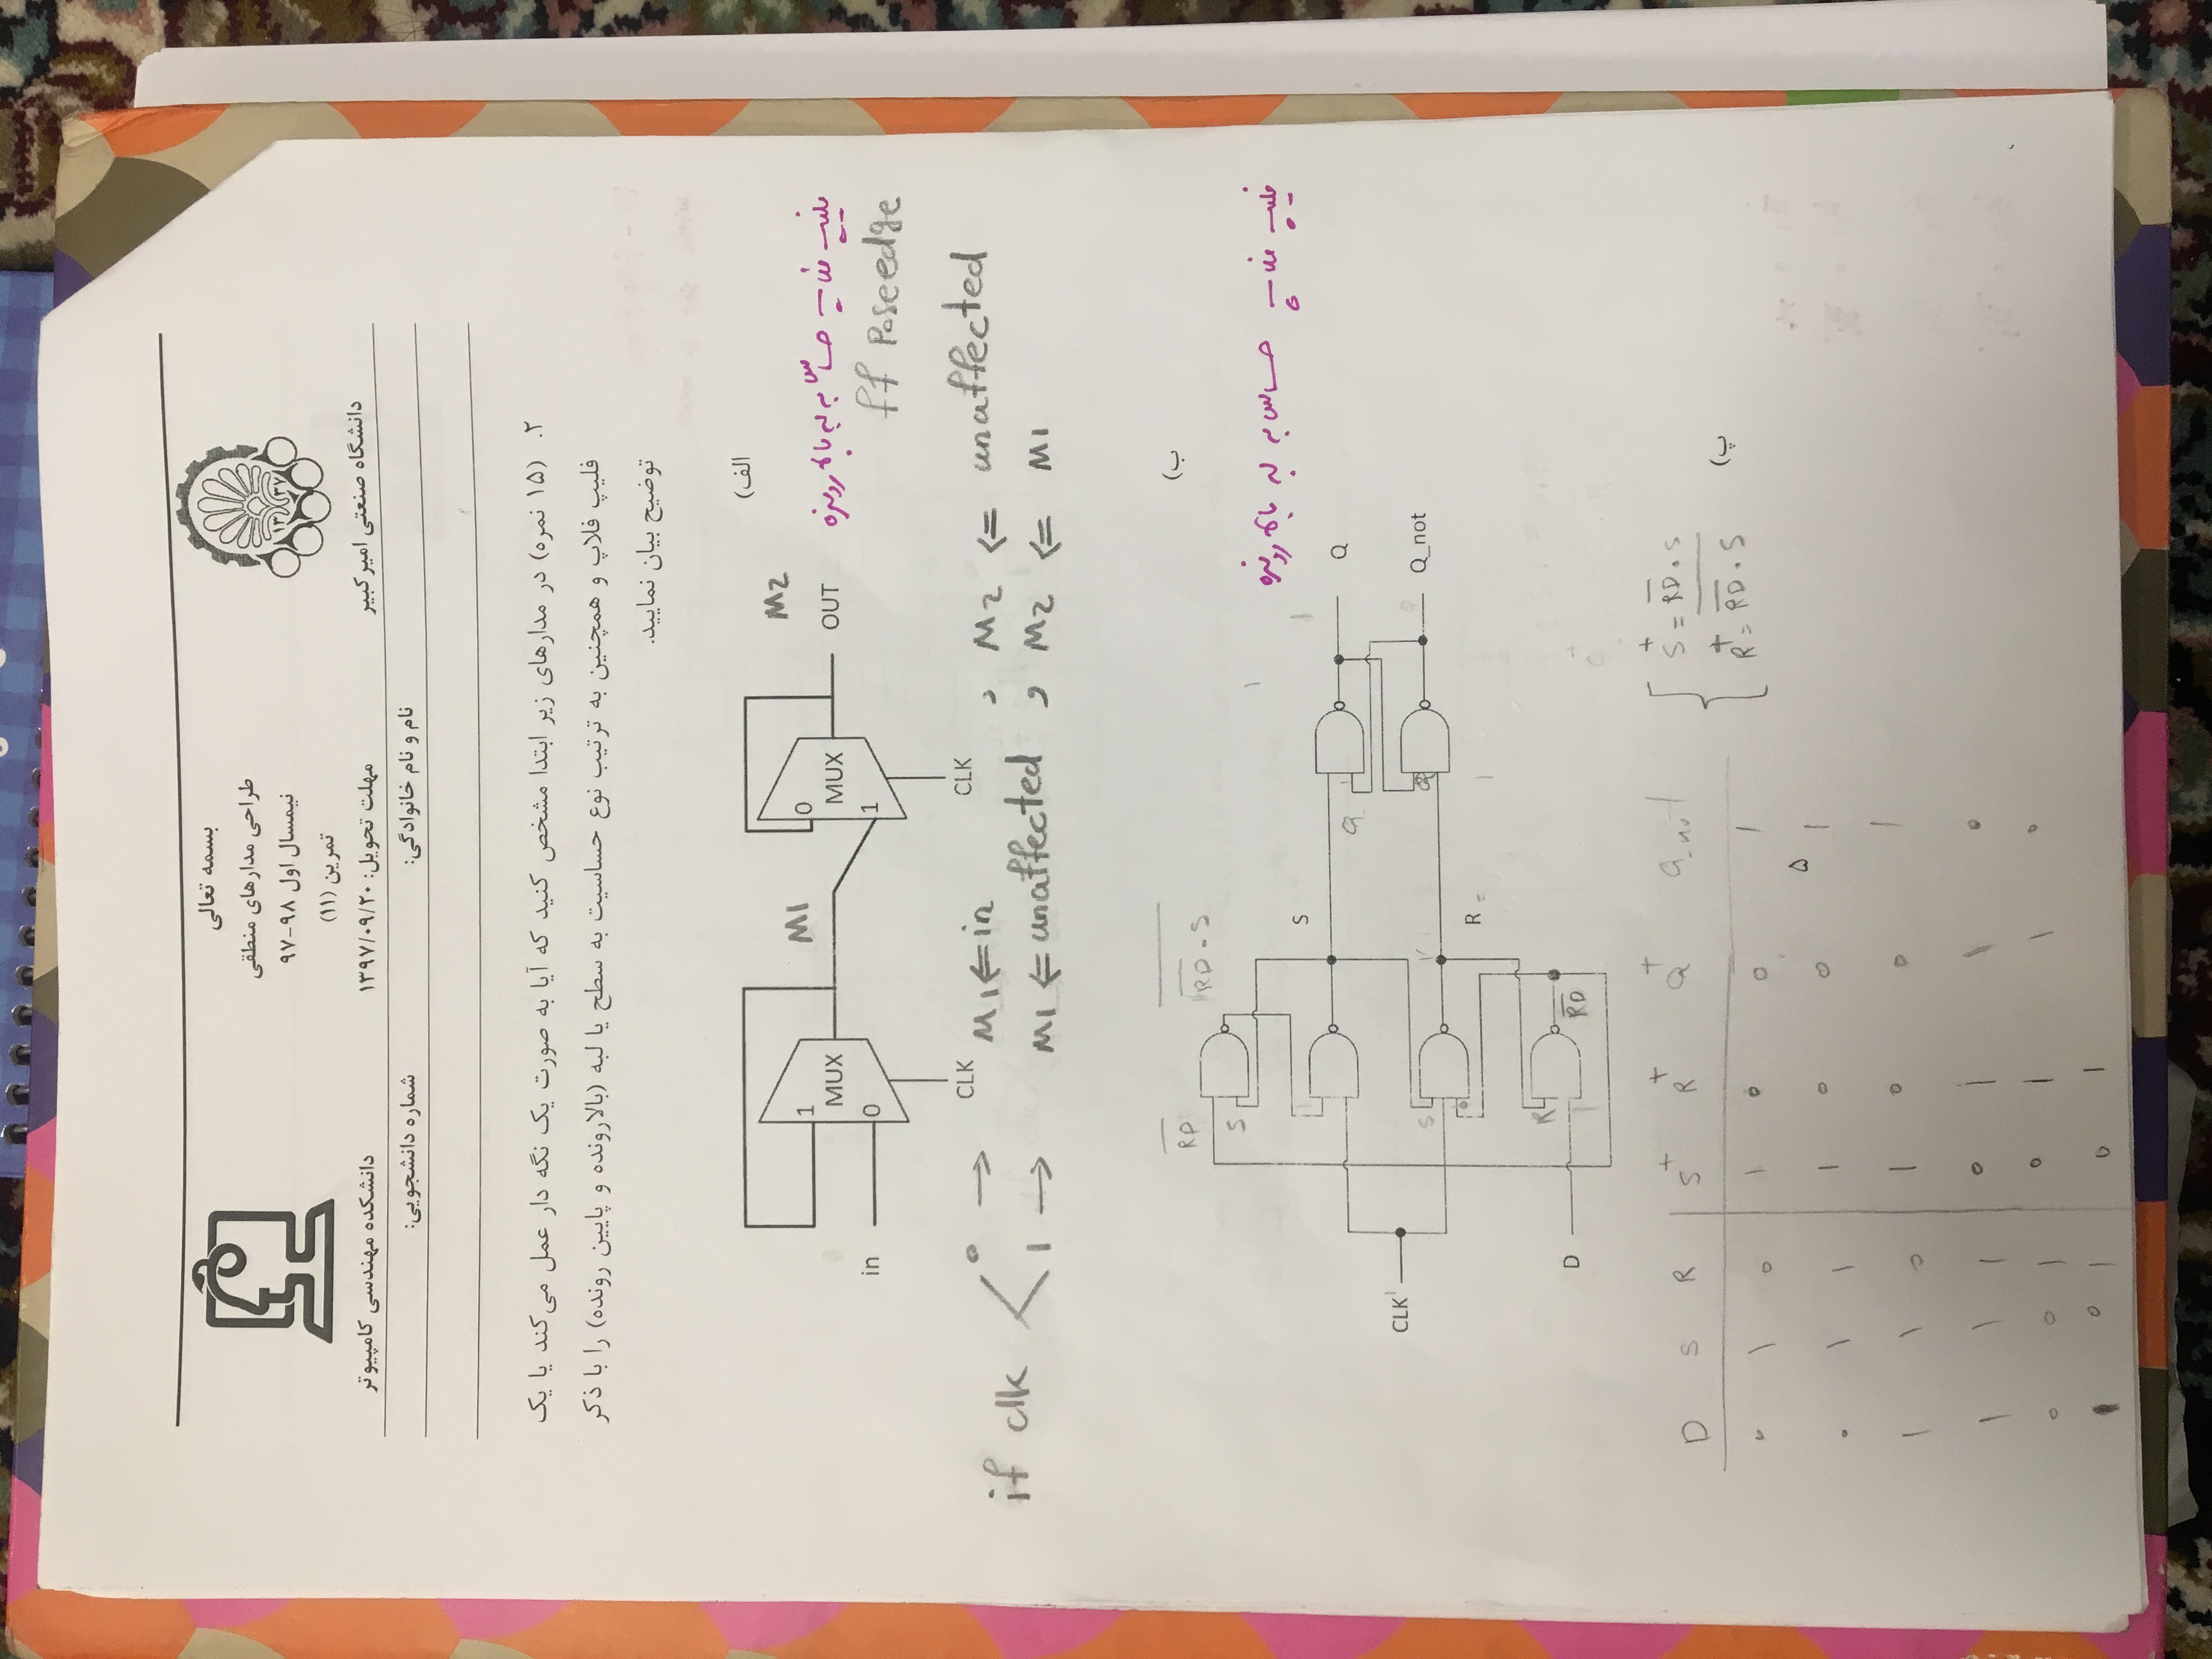 بسمه تعالی
طراحی مدارهای منطقی
نیمسال اول ۹۸-۹۷
تمرین (۱۱)
۱۳ ۳۷
دانشگاه صنعتی امیرکبیر
مهلت تحویل: ۱۳۹۷/۰۹/۲۰
دانشکده مهندسی کامپیوتر
نام و نام خانوادگی:
شماره دانشجویی:
۲. (۱۵ نمره) در مدارهای زیر ابتدا مشخص کنید که آیا به صورت یک نگه دار عمل می‌کند یا یک
فلیپ فلاپ و همچنین به ترتیب نوع حساسیت به سطح یا لبه (بالارونده و پایین رونده) را با ذکر
توضیح بیان نمایید.
الف)
M1
M2
1
MUX
0
in
CLK
0
MUX
1
CLK
OUT
فلیپ فلاپ حساس به لبه بالا رونده
ff Poseedge
if clk
0 → M1 <= in , M2 <= unaffected
1 → M1 <= unaffected , M2 <= M1
ب)
RD
RD . S
S
S
فلیپ فلاپ حساس به لبه بالا رونده
1
1
Q
Q
CLK 1
S
Q_not
R =
1
R
D
RD
D S R S+ R+ Q+ Q_not
S+ = RD . S
R+ = RD . S
پ)
0 1 0 1 0 0 1
0 1 1 1 0 0 1
1 1 0 1 0 0 1
1 1 1 0 1 1 0
0 0 1 0 1 1 0
1 0 1 0 1
۵